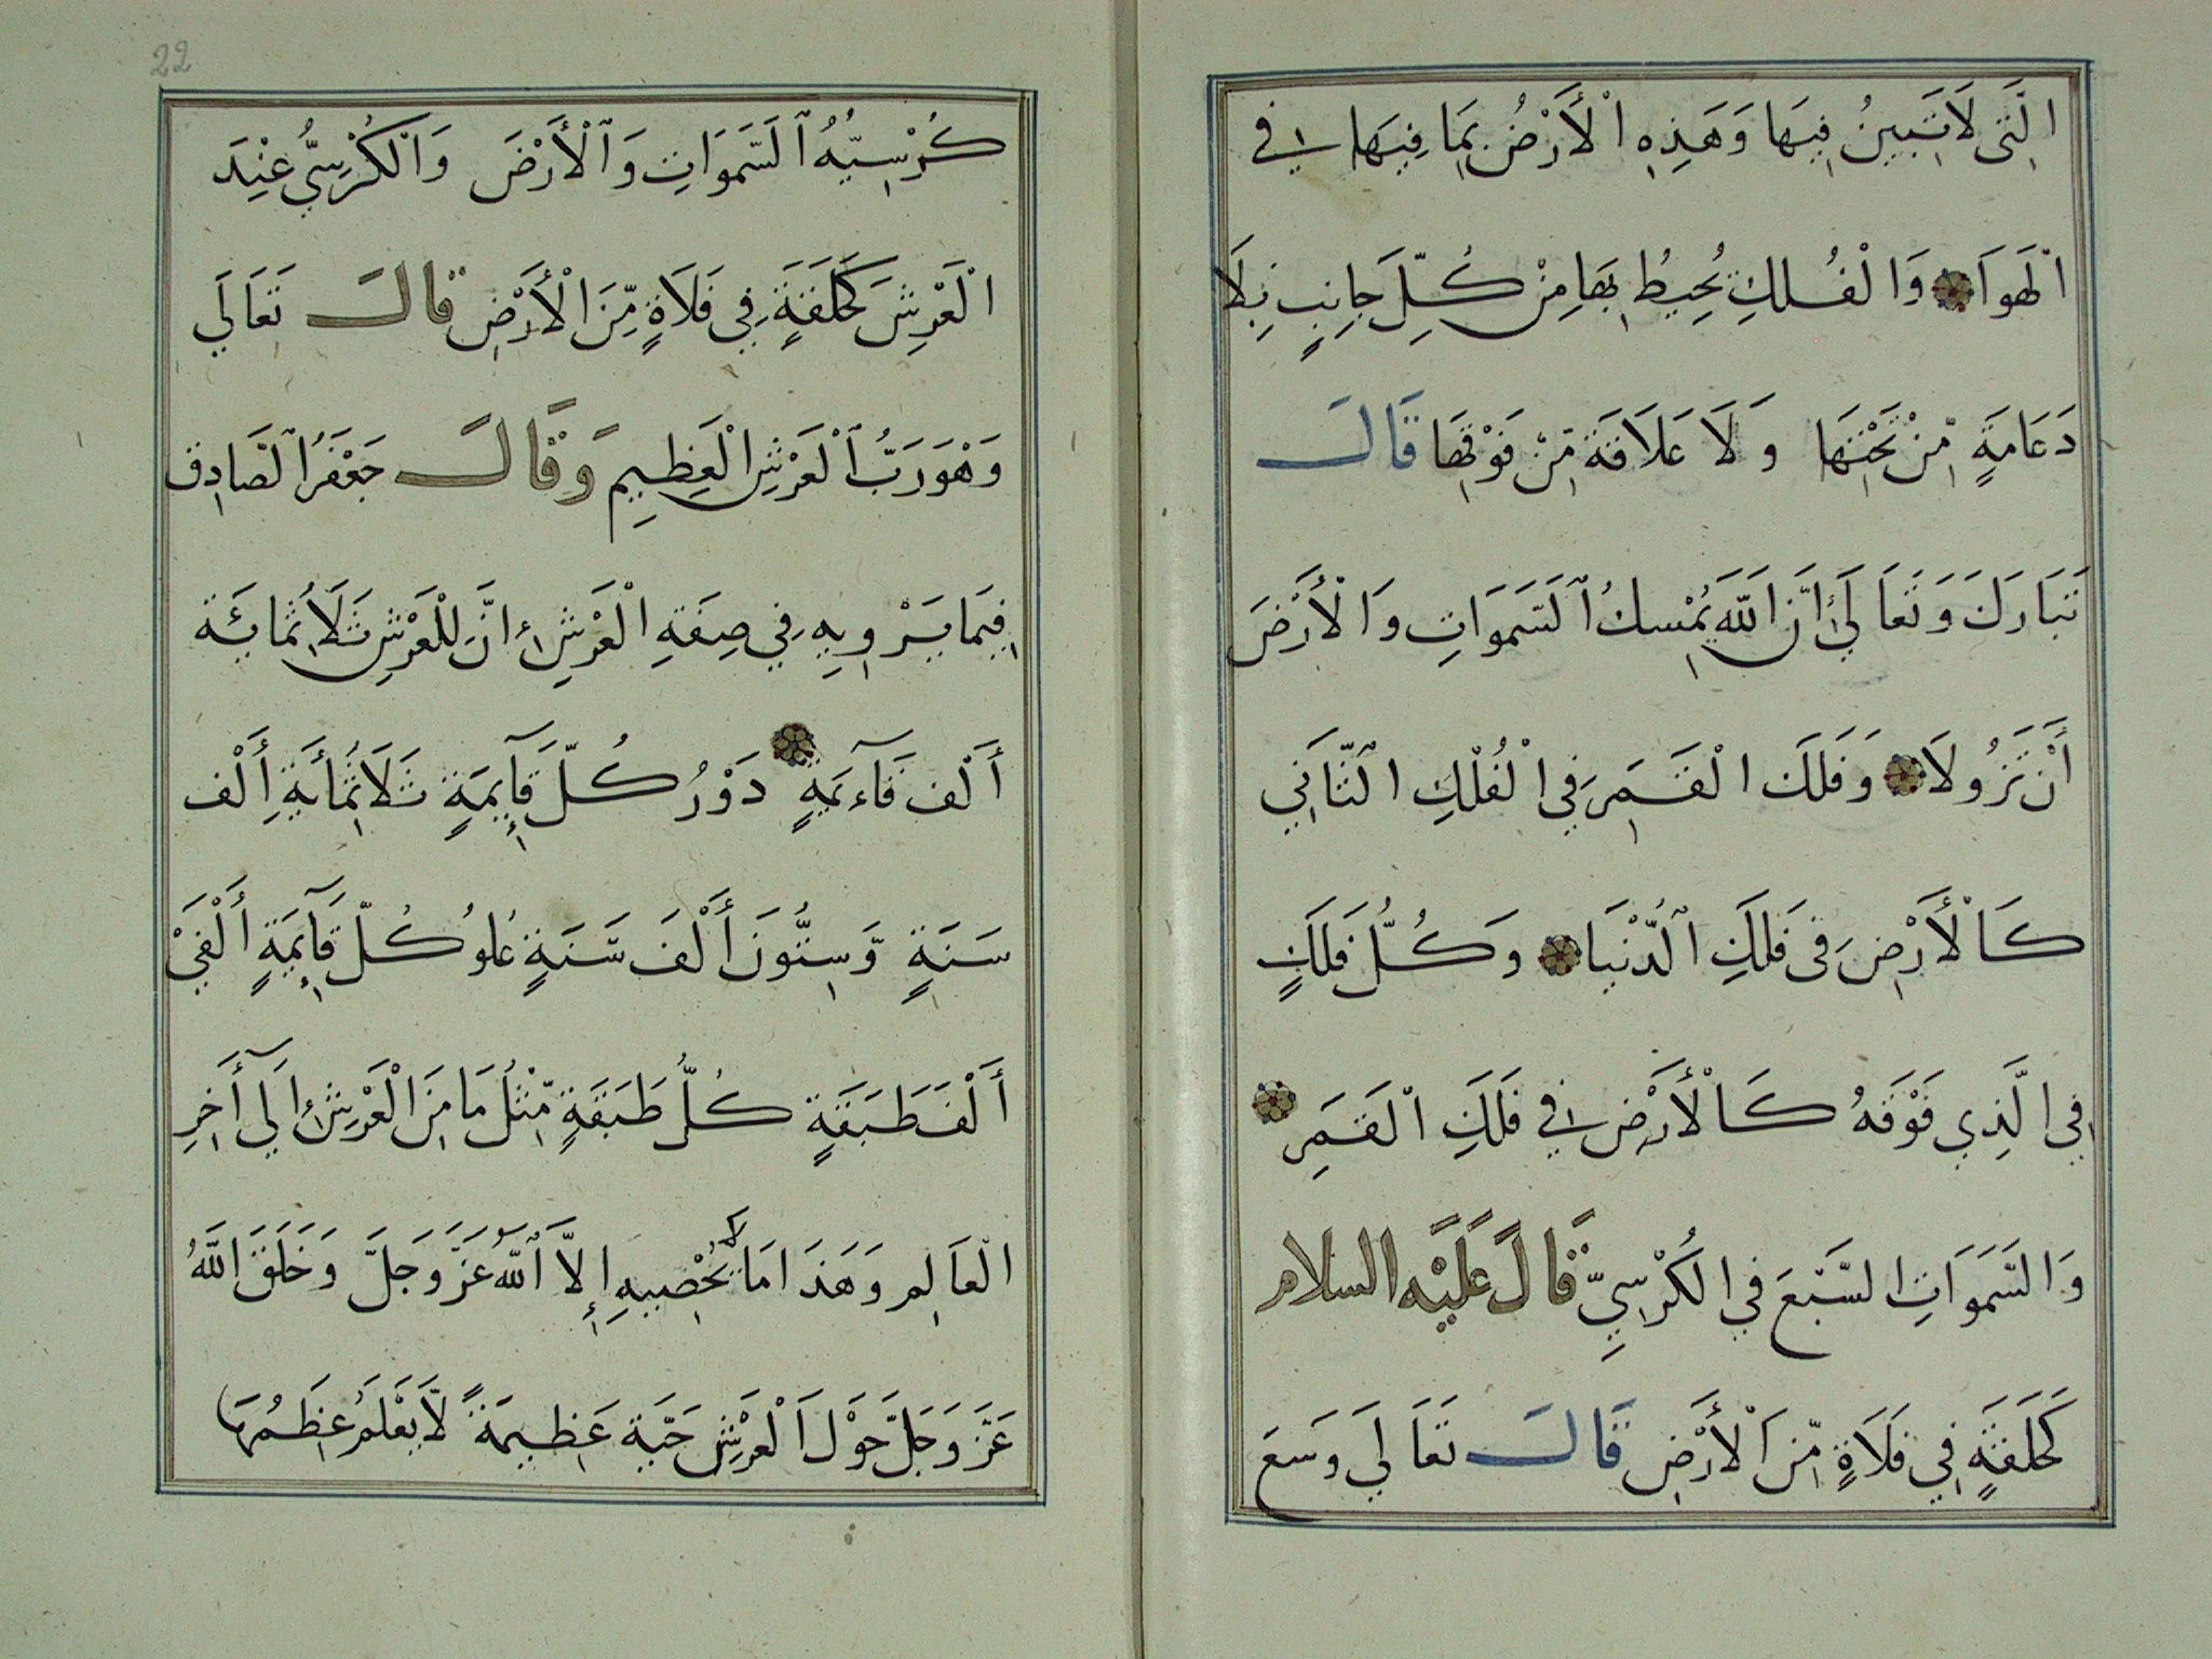 الَّتِى لَا تَبِينُ فِيهَا وَهَذِهِ الْأَرْضُ بِمَا فِيهَا فِي
الْهَوَا وَالْفُلكِ يُحِيطُ بِهَا مِنْ كُلِّ جَانِبٍ بِلَا
دَعَامَةٍ مِّنْ تَحْتِهَا وَلَا عَلَاقَة مِّنْ فَوْقِهَا قَالَ
تَبَارَكَ وَتَعَالَى إِنَّ اللَّهَ يُمْسِكُ ٱلسَّمَوَاتِ وَالْأَرْضَ
أَنْ تَزُولَا وَفَلَكَ الْقَمَرِ فِي الْفُلْكِ الثَّانِي
كَالْأَرْضِ فِى فَلَكِ ٱلدُّنْيَا وَكُلُّ فَلَكٍ
فِي الَّذِي فَوْقَهُ كَالْأَرْضِ فِي فَلَكِ الْقَمَرِ
وَالسَّمَوَاتِ السَّبْعَ فِي الكُرْسِيِّ قَالَ عَلَيْهِ السلام
كَحَلَقَةٍ فِي فَلَاةٍ مِّنَ الْأَرْضِ قَالَ تَعَالَى وَسَعَ
22
كُرْسِيُّهُ ٱلسَّمَوَاتِ وَٱلْأَرْضَ وَالْكُرْسِيُّ عِنْدَ
الْعَرْشِ كَحَلَقَةٍ فِي فَلَاةٍ مِّنَ الْأَرْضِ قالَ تَعَالَي
وَهْوَ رَبُّ ٱلْعَرْشِ الْعَظِيمِ وَقَالَ جَعْفَرُ الصَّادِق
فِيمَا يَرْوِيهِ فِي صِفَةِ الْعَرْشِ إِنَّ لِلْعَرْشِ ثَلَاثُمِائَة
أَلْف قَآءِمَةٍ دَوْرُ كُلِّ قَآئِمَةٍ ثَلَاثُمِأيَةِ أَلْف
سَنَةٍ وَّسِتُّونَ أَلْفَ سَّنَةٍ عُلوُ كُلّ قَآئِمَةٍ أَلْفَيْ
أَلْف طَبَقَةٍ كُلُّ طَبَقَةٍ مِّثْلُ مَا مِنَ الْعَرْشِ إِلَي آخِرِ
الْعَالِم وَهَذَا مَا لَا يُحْصِيهِ إِلَّا ٱللَّهُ عَزَّ وَجَلَّ وَخَلَقَ اللَّهُ
عَزَّ وَجَلَّ حَوْلَ الْعَرْشِ حَيَّة عَظِيمَةً لَّا يَعْلَمُ عِظَمُهَا